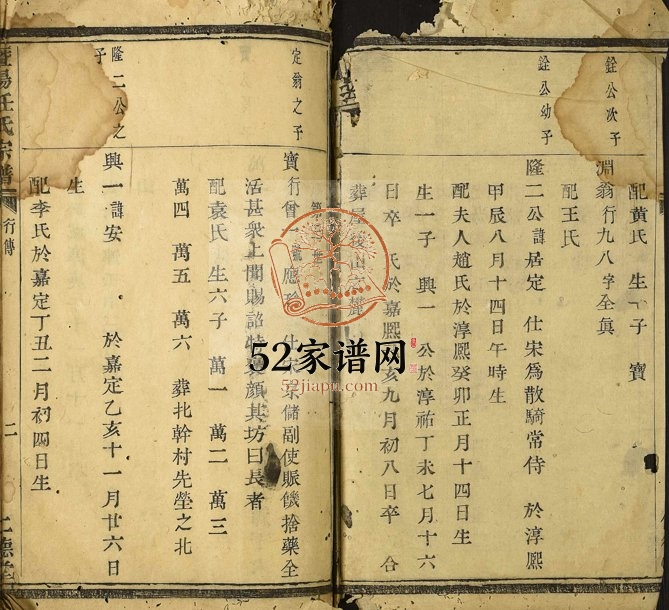 銓公次子
銓公幼子
配黃氏　生一子　寶
淵翁行九八字全眞
配王氏
隆二公諱居定　仕宋爲散騎常侍　於淳熙
甲辰八月十四日午時生
配夫人趙氏於淳熙癸卯正月十四日生
生一子　興一　公於淳祐丁未七月十六
日卒　氏於嘉熙　亥九月初八日卒　合
葬屋後山
定翁之子
寶行曾一　應　仕宋　儲副使賑饑捨藥全
活甚衆上聞賜詔特　顏其坊曰長者
配袁氏　生六子　萬一　萬二　萬三
萬四　萬五　萬六　葬北幹村先塋之北
隆二公之
子
興一諱安　於嘉定乙亥十一月廿六日
生
配李氏於嘉定丁丑二月初四日生
暨陽任氏宗譜
行傳
二
52家谱网
52jiapu.com